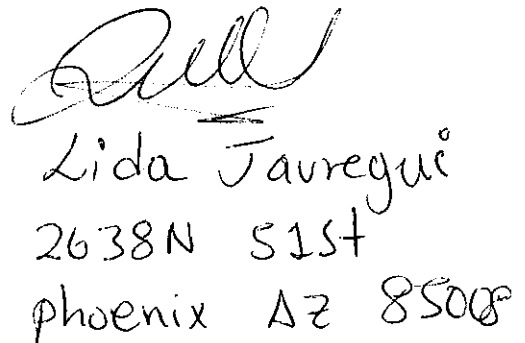 Lida Jauregui
2638N 51St
phoenix AZ 85008